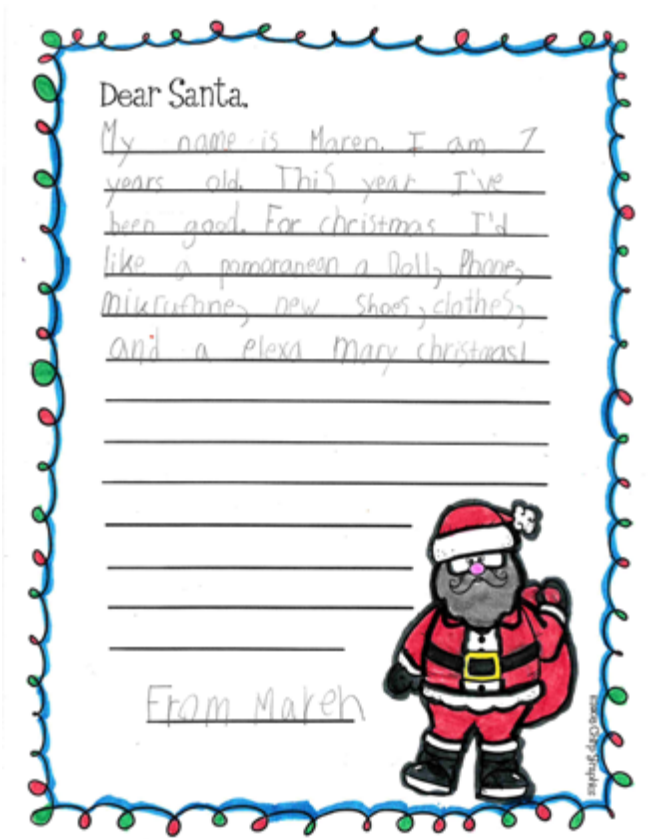 Dear Santa,
My name is Maren. I am 7
years old. This year I've
been good. For christmas I'd
like a pomoranean a Doll, Phone,
mikrufone, new shoes, clothes,
and a elexa mary christmas!
From Maren